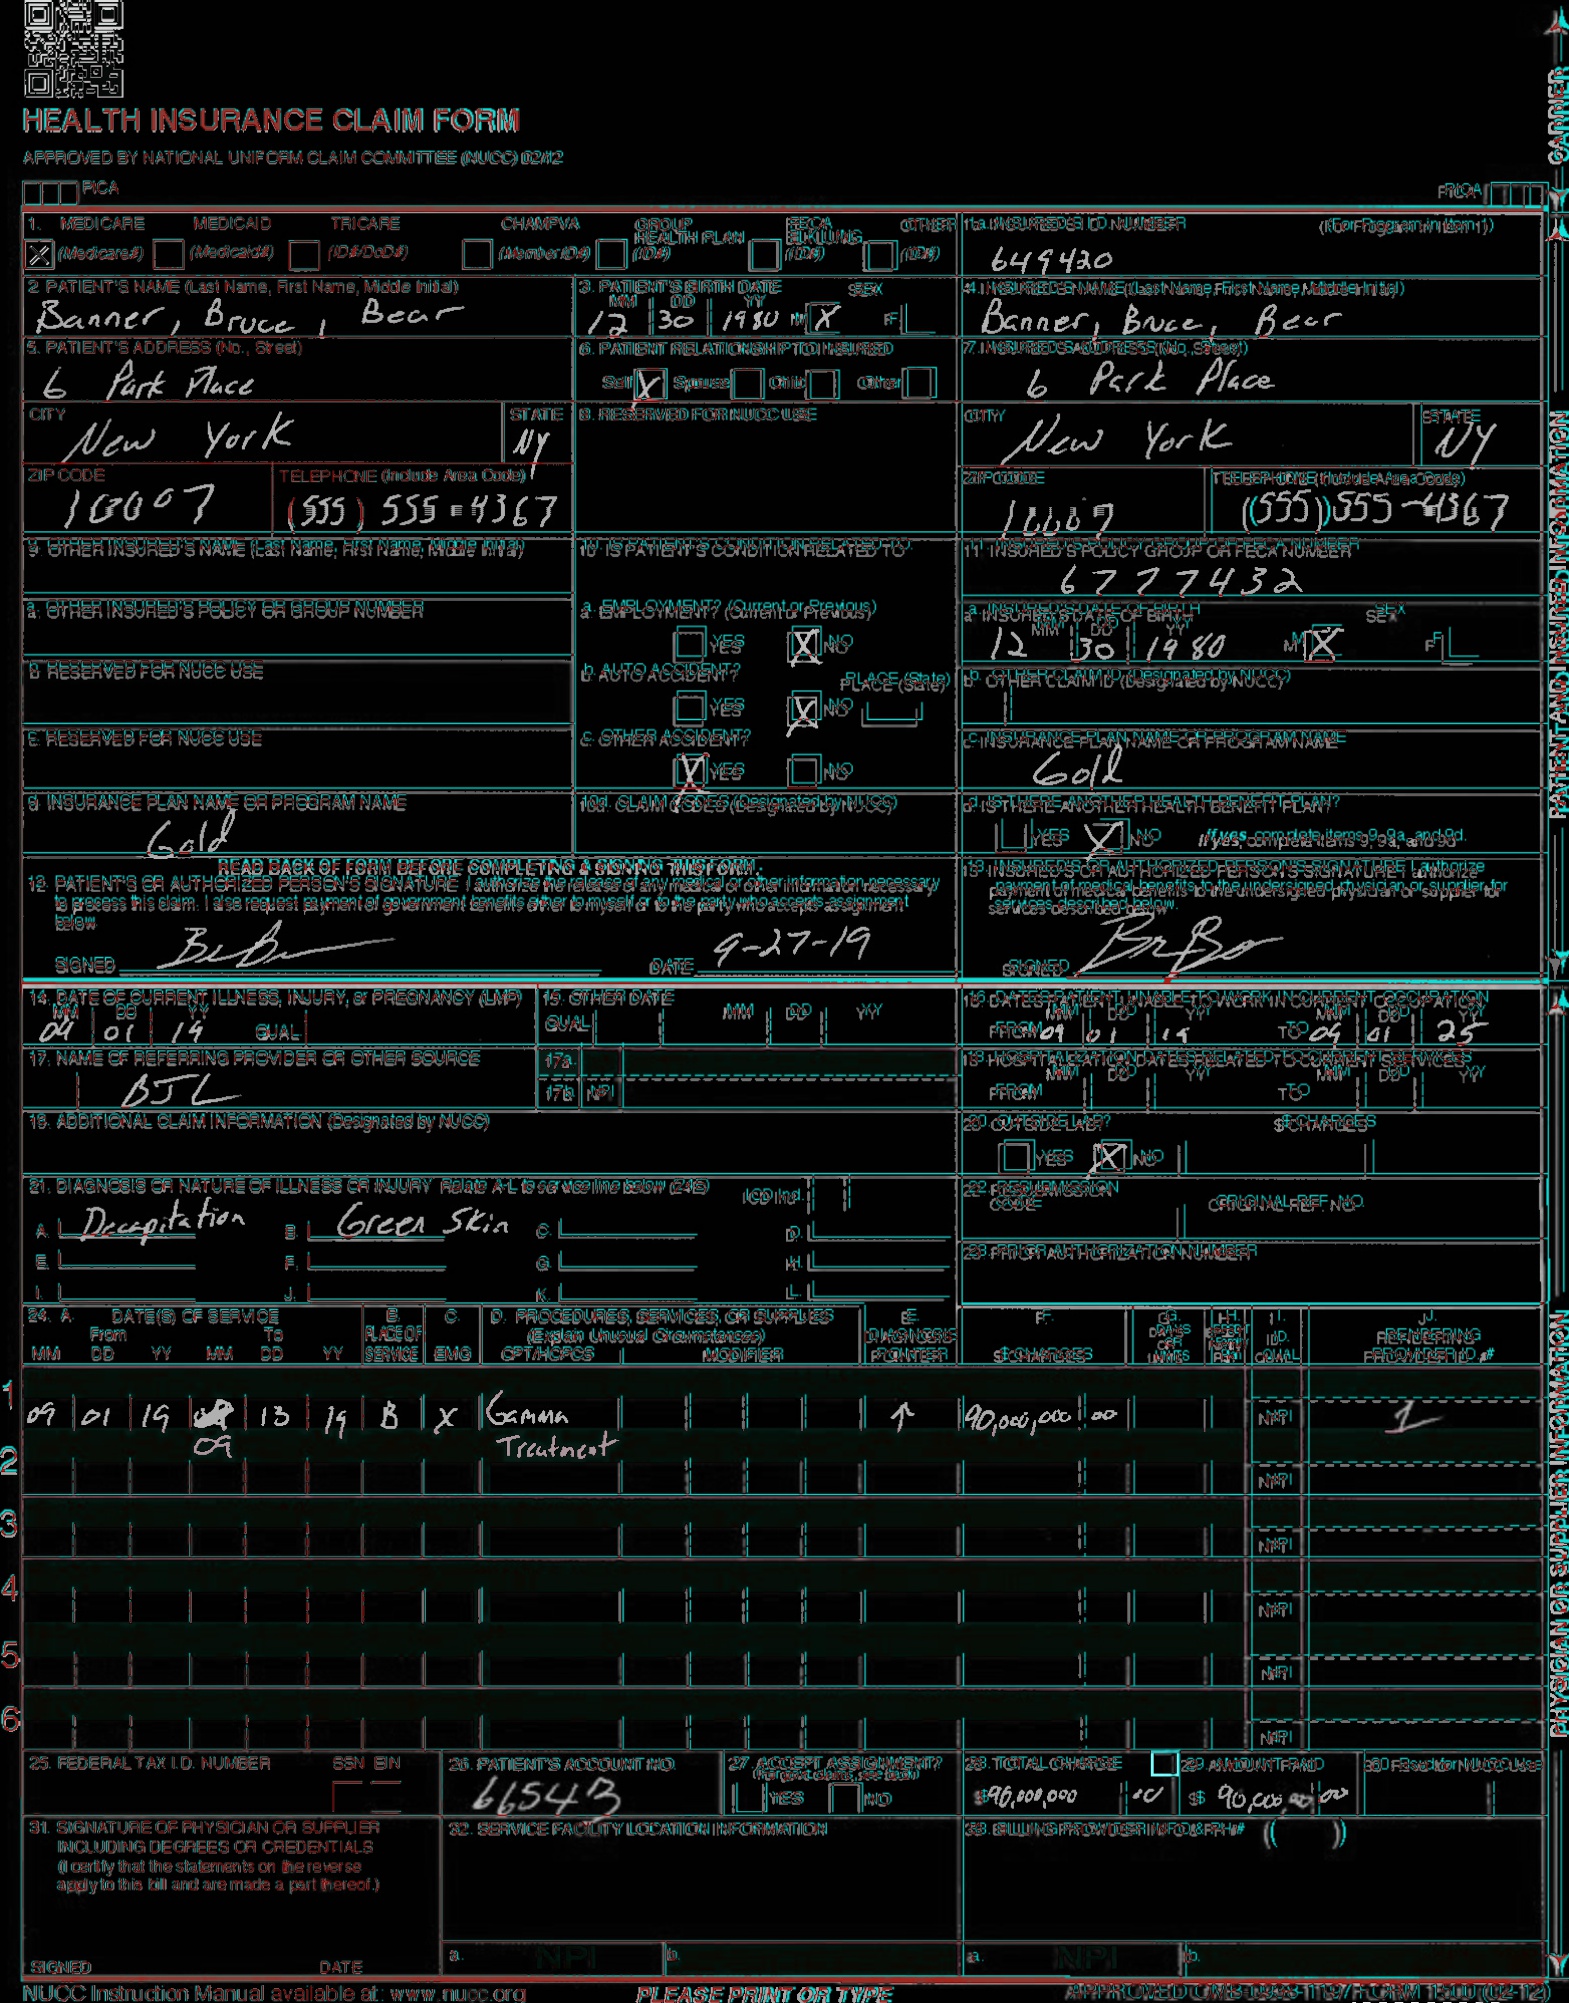 HEALTH INSURANCE CLAIM FORM
APPROVED BY NATIONAL UNIFORM CLAIM COMMITTEE (NUCC) 02/12
PICA
PICA
CARRIER
1. MEDICARE MEDICAID TRICARE CHAMPVA GROUP HEALTH PLAN FECA BLKLUNG OTHER
X (Medicare#) (Medicaid#) (ID#/DoD#) (Member ID#) (ID#) (ID#) (ID#)
1a. INSURED'S I.D. NUMBER (For Program in Item 1)
649420
2. PATIENT'S NAME (Last Name, First Name, Middle Initial)
Banner, Bruce, Bear
3. PATIENT'S BIRTH DATE SEX
MM DD YY
12 30 1980 M X F
4. INSURED'S NAME (Last Name, First Name, Middle Initial)
Banner, Bruce, Bear
5. PATIENT'S ADDRESS (No., Street)
6 Park Place
6. PATIENT RELATIONSHIP TO INSURED
Self X Spouse Child Other
7. INSURED'S ADDRESS (No., Street)
6 Park Place
CITY STATE
New York NY
8. RESERVED FOR NUCC USE
CITY STATE
New York NY
ZIP CODE TELEPHONE (Include Area Code)
10007 (555) 555-4367
ZIP CODE TELEPHONE (Include Area Code)
10007 (555) 555-4367
9. OTHER INSURED'S NAME (Last Name, First Name, Middle Initial)
10. IS PATIENT'S CONDITION RELATED TO:
11. INSURED'S POLICY GROUP OR FECA NUMBER
6777432
a. OTHER INSURED'S POLICY OR GROUP NUMBER
a. EMPLOYMENT? (Current or Previous)
YES X NO
a. INSURED'S DATE OF BIRTH SEX
MM DD YY
12 30 1980 M X F
b. RESERVED FOR NUCC USE
b. AUTO ACCIDENT? PLACE (State)
YES X NO
b. OTHER CLAIM ID (Designated by NUCC)
c. RESERVED FOR NUCC USE
c. OTHER ACCIDENT?
X YES NO
c. INSURANCE PLAN NAME OR PROGRAM NAME
Gold
d. INSURANCE PLAN NAME OR PROGRAM NAME
Gold
10d. CLAIM CODES (Designated by NUCC)
d. IS THERE ANOTHER HEALTH BENEFIT PLAN?
YES X NO If yes, complete items 9, 9a, and 9d.
PATIENT AND INSURED INFORMATION
READ BACK OF FORM BEFORE COMPLETING & SIGNING THIS FORM.
12. PATIENT'S OR AUTHORIZED PERSON'S SIGNATURE I authorize the release of any medical or other information necessary
to process this claim. I also request payment of government benefits either to myself or to the party who accepts assignment
below.
SIGNED DATE 9-27-19
13. INSURED'S OR AUTHORIZED PERSON'S SIGNATURE I authorize
payment of medical benefits to the undersigned physician or supplier for
services described below.
SIGNED
14. DATE OF CURRENT ILLNESS, INJURY, or PREGNANCY (LMP)
MM DD YY
09 01 19 QUAL.
15. OTHER DATE
QUAL. MM DD YY
16. DATES PATIENT UNABLE TO WORK IN CURRENT OCCUPATION
MM DD YY MM DD YY
FROM 09 01 19 TO 09 01 25
17. NAME OF REFERRING PROVIDER OR OTHER SOURCE
BJL
17a.
17b. NPI
18. HOSPITALIZATION DATES RELATED TO CURRENT SERVICES
MM DD YY MM DD YY
FROM TO
19. ADDITIONAL CLAIM INFORMATION (Designated by NUCC)
20. OUTSIDE LAB? $ CHARGES
YES X NO
21. DIAGNOSIS OR NATURE OF ILLNESS OR INJURY Relate A-L to service line below (24E) ICD Ind.
A. Decapitation B. Green Skin C. D.
E. F. G. H.
I. J. K. L.
22. RESUBMISSION
CODE ORIGINAL REF. NO.
23. PRIOR AUTHORIZATION NUMBER
24. A. DATE(S) OF SERVICE B. C. D. PROCEDURES, SERVICES, OR SUPPLIES E. F. G. H. I. J.
From To PLACE OF (Explain Unusual Circumstances) DIAGNOSIS DAYS OR ID. RENDERING
MM DD YY MM DD YY SERVICE EMG CPT/HCPCS MODIFIER POINTER $ CHARGES UNITS QUAL. PROVIDER ID. #
1
09 01 19 13 19 B X Gamma ↑ 90,000,000 00 NPI 1
09 Treatment
2 NPI
3 NPI
4 NPI
5 NPI
6 NPI
PHYSICIAN OR SUPPLIER INFORMATION
25. FEDERAL TAX I.D. NUMBER SSN EIN
26. PATIENT'S ACCOUNT NO.
66543
27. ACCEPT ASSIGNMENT?
(For govt. claims, see back)
YES NO
28. TOTAL CHARGE
$ 90,000,000 00
29. AMOUNT PAID
$ 90,000,000 00
30. Rsvd for NUCC Use
31. SIGNATURE OF PHYSICIAN OR SUPPLIER
INCLUDING DEGREES OR CREDENTIALS
(I certify that the statements on the reverse
apply to this bill and are made a part thereof.)
SIGNED DATE
32. SERVICE FACILITY LOCATION INFORMATION
a. NPI b.
33. BILLING PROVIDER INFO & PH # ( )
a. NPI b.
NUCC Instruction Manual available at: www.nucc.org
PLEASE PRINT OR TYPE
APPROVED OMB-0938-1197 FORM 1500 (02-12)